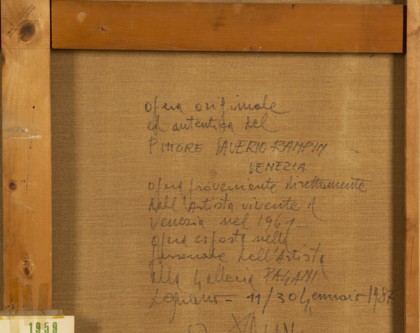 opera originale
ed autentica del
PITTORE SAVERIO RAMPIN
VENEZIA
opera proveniente direttamente
dall'Artista vivente a
Venezia nel 1961
opera esposta nella
personale dell'Artista
alla Galleria PAGANI
Legnano - 11/30 Gennaio 1987
1959